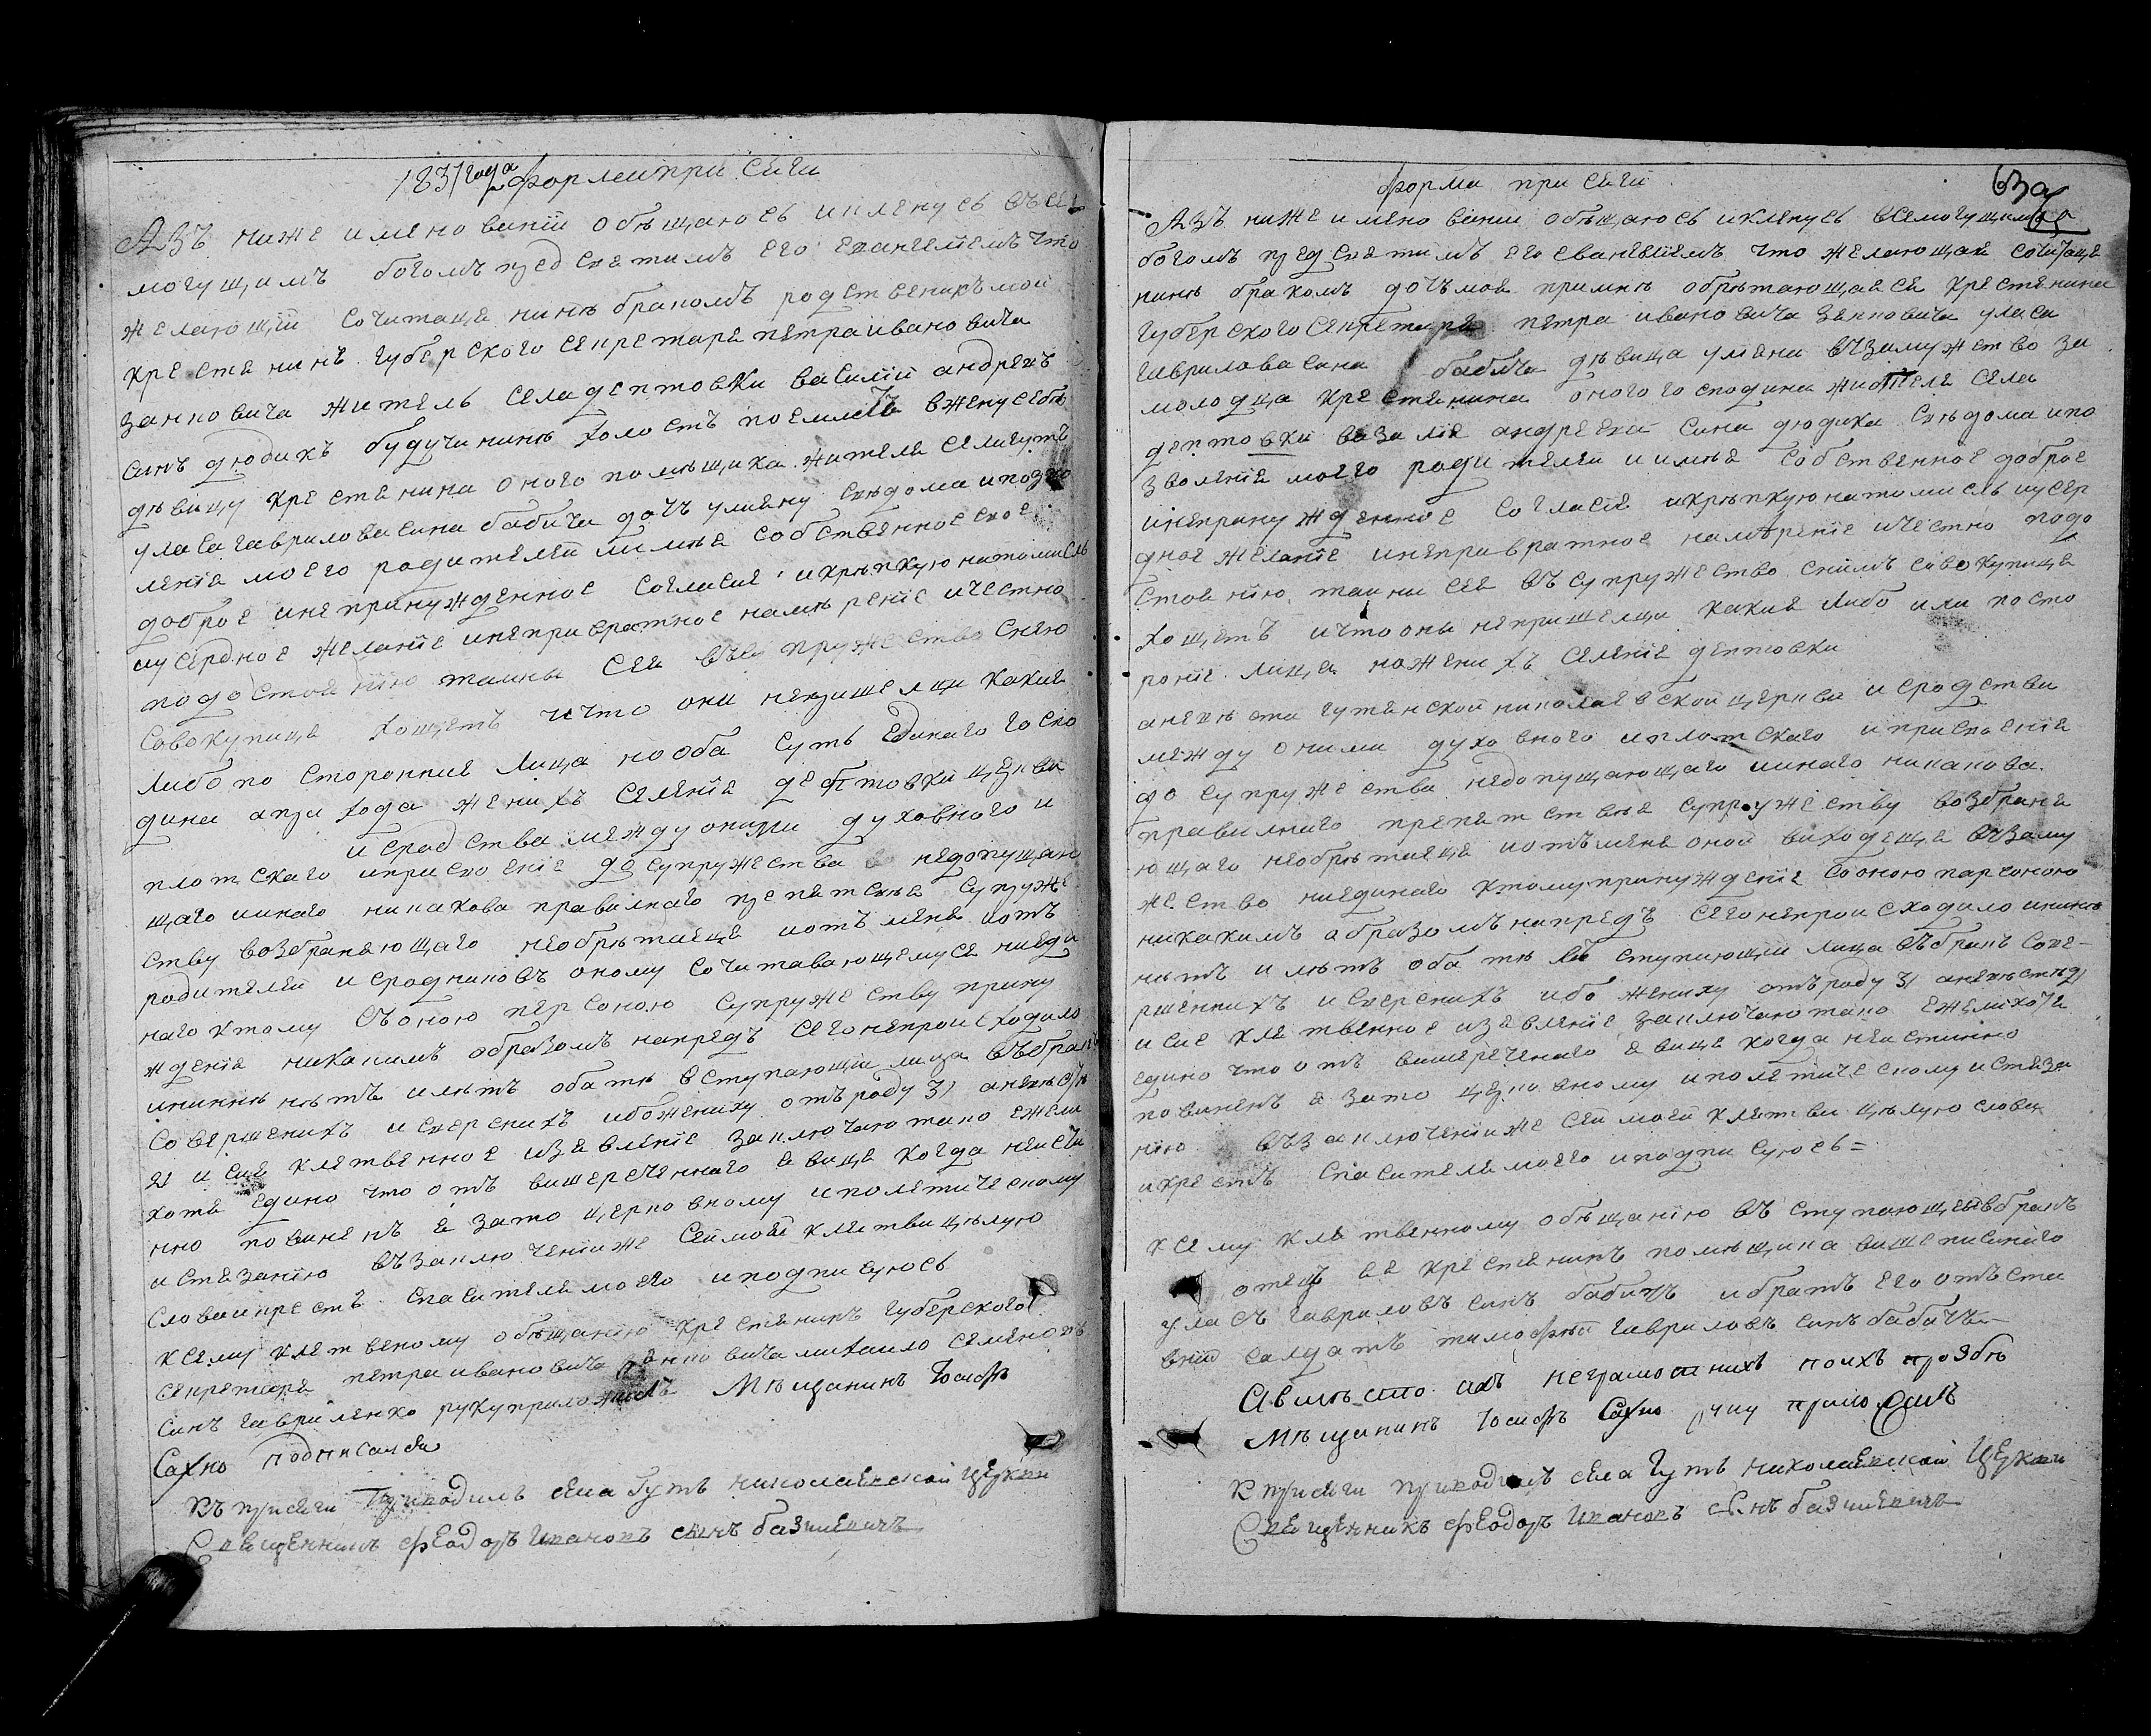 1831 года форма при сяги
Азъ ниже имяно ваній обѣщаюсь и клянусь въ все
могущимъ богомъ пред святимъ его евангелиемъ что
желающій сочитаця нинѣ бракомъ родственикъ мой
крестянинъ губерского секретаря петра ивановича
занковича житель села дептовки василій андреевъ
синъ дюдикъ будучи нинѣ холостъ поемлетъ вжену себѣ
дѣвицу крестянина оного помѣщика жителя села гутъ
уласа гаврилова сина бабича дочъ уляну свѣдома и позво
ленія моего родителей и имѣя собственное свое
доброе и непринужденное согласие и крѣпкую на то мисль
и усердное желаніе и непривратное намѣреніе и честно
подостоянію тайны сея въ супружество снею
совокупиця хощетъ и что они непришелци какие
либо посторонние лица но оба суть единаго госпо
дина а прихода жених селенія дептовки церкви
и сродства между оними духовного и
плотскаго и присвоеніе до супружества недопущаю
щаго и инаго никакова правилнаго препятсвия супруже
ству возбраняющаго необрѣтаеця и отъ меня и отъ
родителей и сродниковъ оному сочитавающемуся ниеди
наго ктому съ оною персоною супружеству прину
жденія никакимъ образомъ напредъ сего непроисходило
и нинѣ нѣтъ и лѣтъ оба тѣ вступающій лица въ бракъ
совершенихъ и сверснихъ ибо жениху отъ роду 31 а невѣстѣ
21 и сие клятвенное изявленіе заключаю тако ежели
хотя едино что отъ вишереченнаго явиця когда неисти
нно повиненъ я зато церковному и полятическому
истязанію въ заключеніи же сей моей клятви цѣлую
слова и крестъ спасителя моего и подписуюсь
к сему клятвеному обѣщанію крестянинъ губерского
секретаря петра ивановича занковича михаило семеновъ
синъ гавриленко руку приложилъ Мѣщанинъ Іосифъ
Сахно подписался
Къ присяги приводилъ села Гутъ николаевской церкви
Священникъ феодоръ Ивановъ синъ базилевичъ
форма при сяги
63
Азъ ниже имяно ваний обѣщаюсь и клянусь всемогущимъ
богомъ пред святимъ его евангелиемъ что желающая сочитаця
нинѣ бракомъ дочъ моя примнѣ обрѣтающаяся крестянина
губерского секретаря петра ивановича занковича уласа
гаврилова сина бабича дѣвица уляна въ замужество за
молодца крестянина оного господина жителя села
дептовки василія андреева сина дюдика свѣдома и по
зволенія моего родителей и имѣя собственное доброе
и непринужденное согласия и крѣпкую на то мисль и усер
дное желание и неправратное намѣреніе и честно подо
стоянію тайни сея въ супружество снимъ совокупиця
хощетъ и что оны непришелци какия либо или посто
роние лица но женихъ селенія дептовки
а невѣста гутянской николаевской церкви и сродства
между оними духовного и плотскаго и присвоенія
до супружества недопущающаго и инаго никакова
правилнаго препятствия супружеству возбраня
ющаго необрѣтаеця и отъ меня оной виходяще въ заму
жество ниединаго ктому принужденія со оною парсоною
никакимъ образомъ напредъ сего непроисходило и нинѣ
нѣтъ и лѣтъ оба тѣ вступающий лица въ бракъ сове-
ршеннихъ и сверснихъ ибо жениху отъ роду 31 а невѣстѣ 21
и сие клятвенное изявление заключаю тако ежели хотя
едино что отъ вишереченаго явиця когда неистинно
повиненъ я зато церковному и полятическому истяза
нию въ заключеніи же сей моей клятви цѣлую слова
и крестъ спасителя моего и подписуюсь =
к сему клятвенному обѣщанію въступающей въ бракъ
отецъ ея крестянинъ помѣщика вишеписаного
уласъ гавриловъ синъ бабичъ и братъ его отъста
вній салдатъ тимофѣй гавриловъ синъ бабачъ
А вмѣсто ихъ неграмотнихъ поихъ прозбѣ
Мѣщанинъ Іосифъ Сахно руку приложилъ
К присяги приводилъ села Гутъ николаевской церкви
Священникъ феодоръ Ивановъ синъ базилевичъ